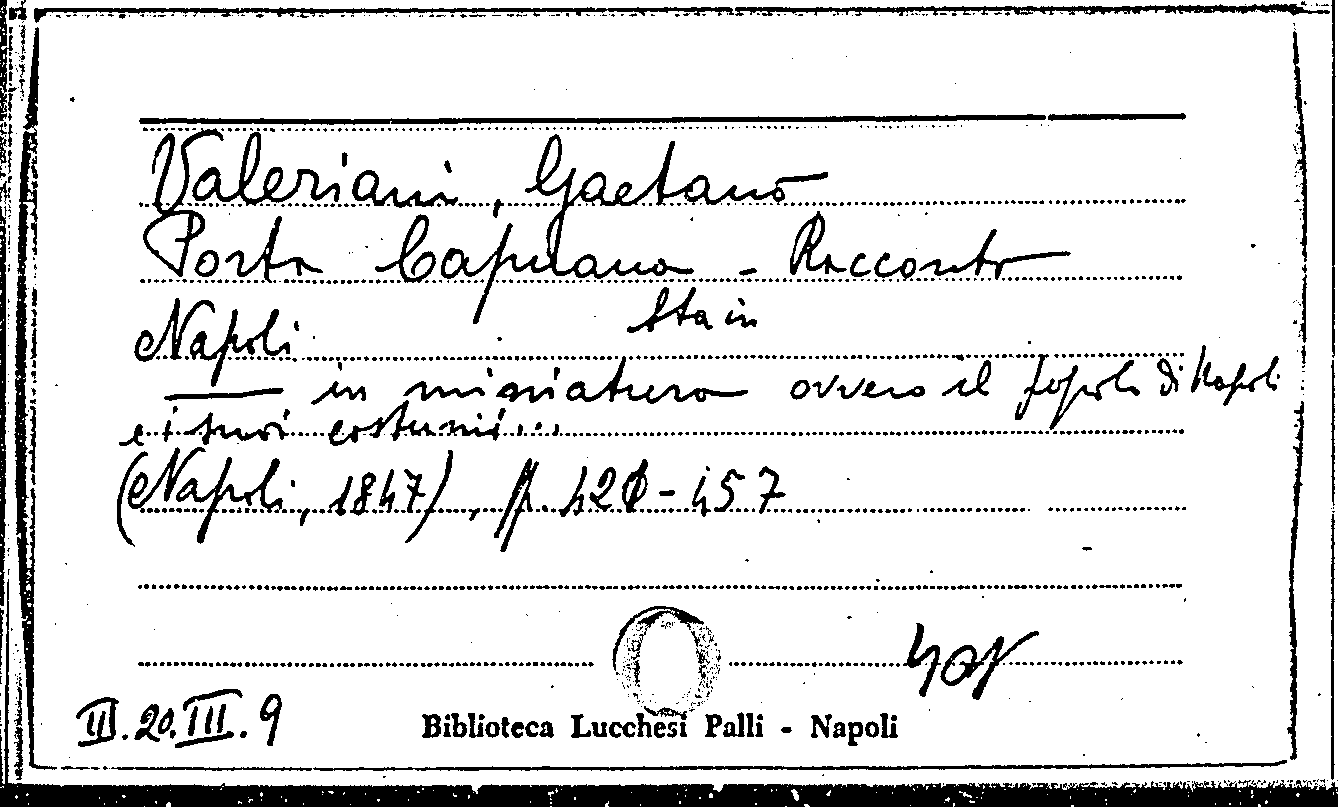 Valeriani, Gaetano
Porta Capuana - Racconto
Sta in
Napoli
in miniatura ovvero il popolo di Napoli
e i suoi costumi...
(Napoli, 1847), pp. 420-457
II.20.III.9
Biblioteca Lucchesi Palli - Napoli